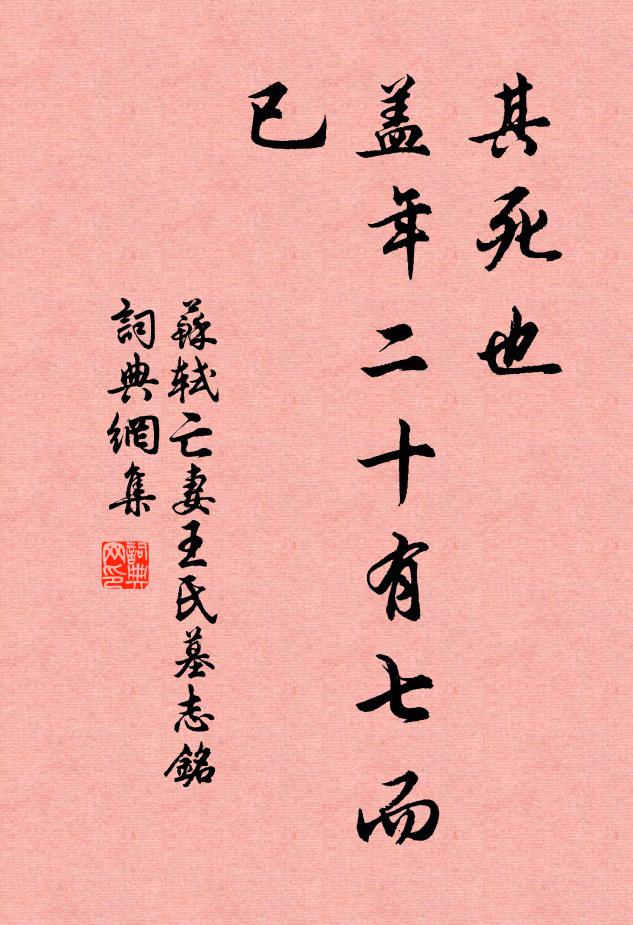 其死也
盖年二十有七而
已
蘇軾亡妻王氏墓志銘
詞典網集
詞典网印